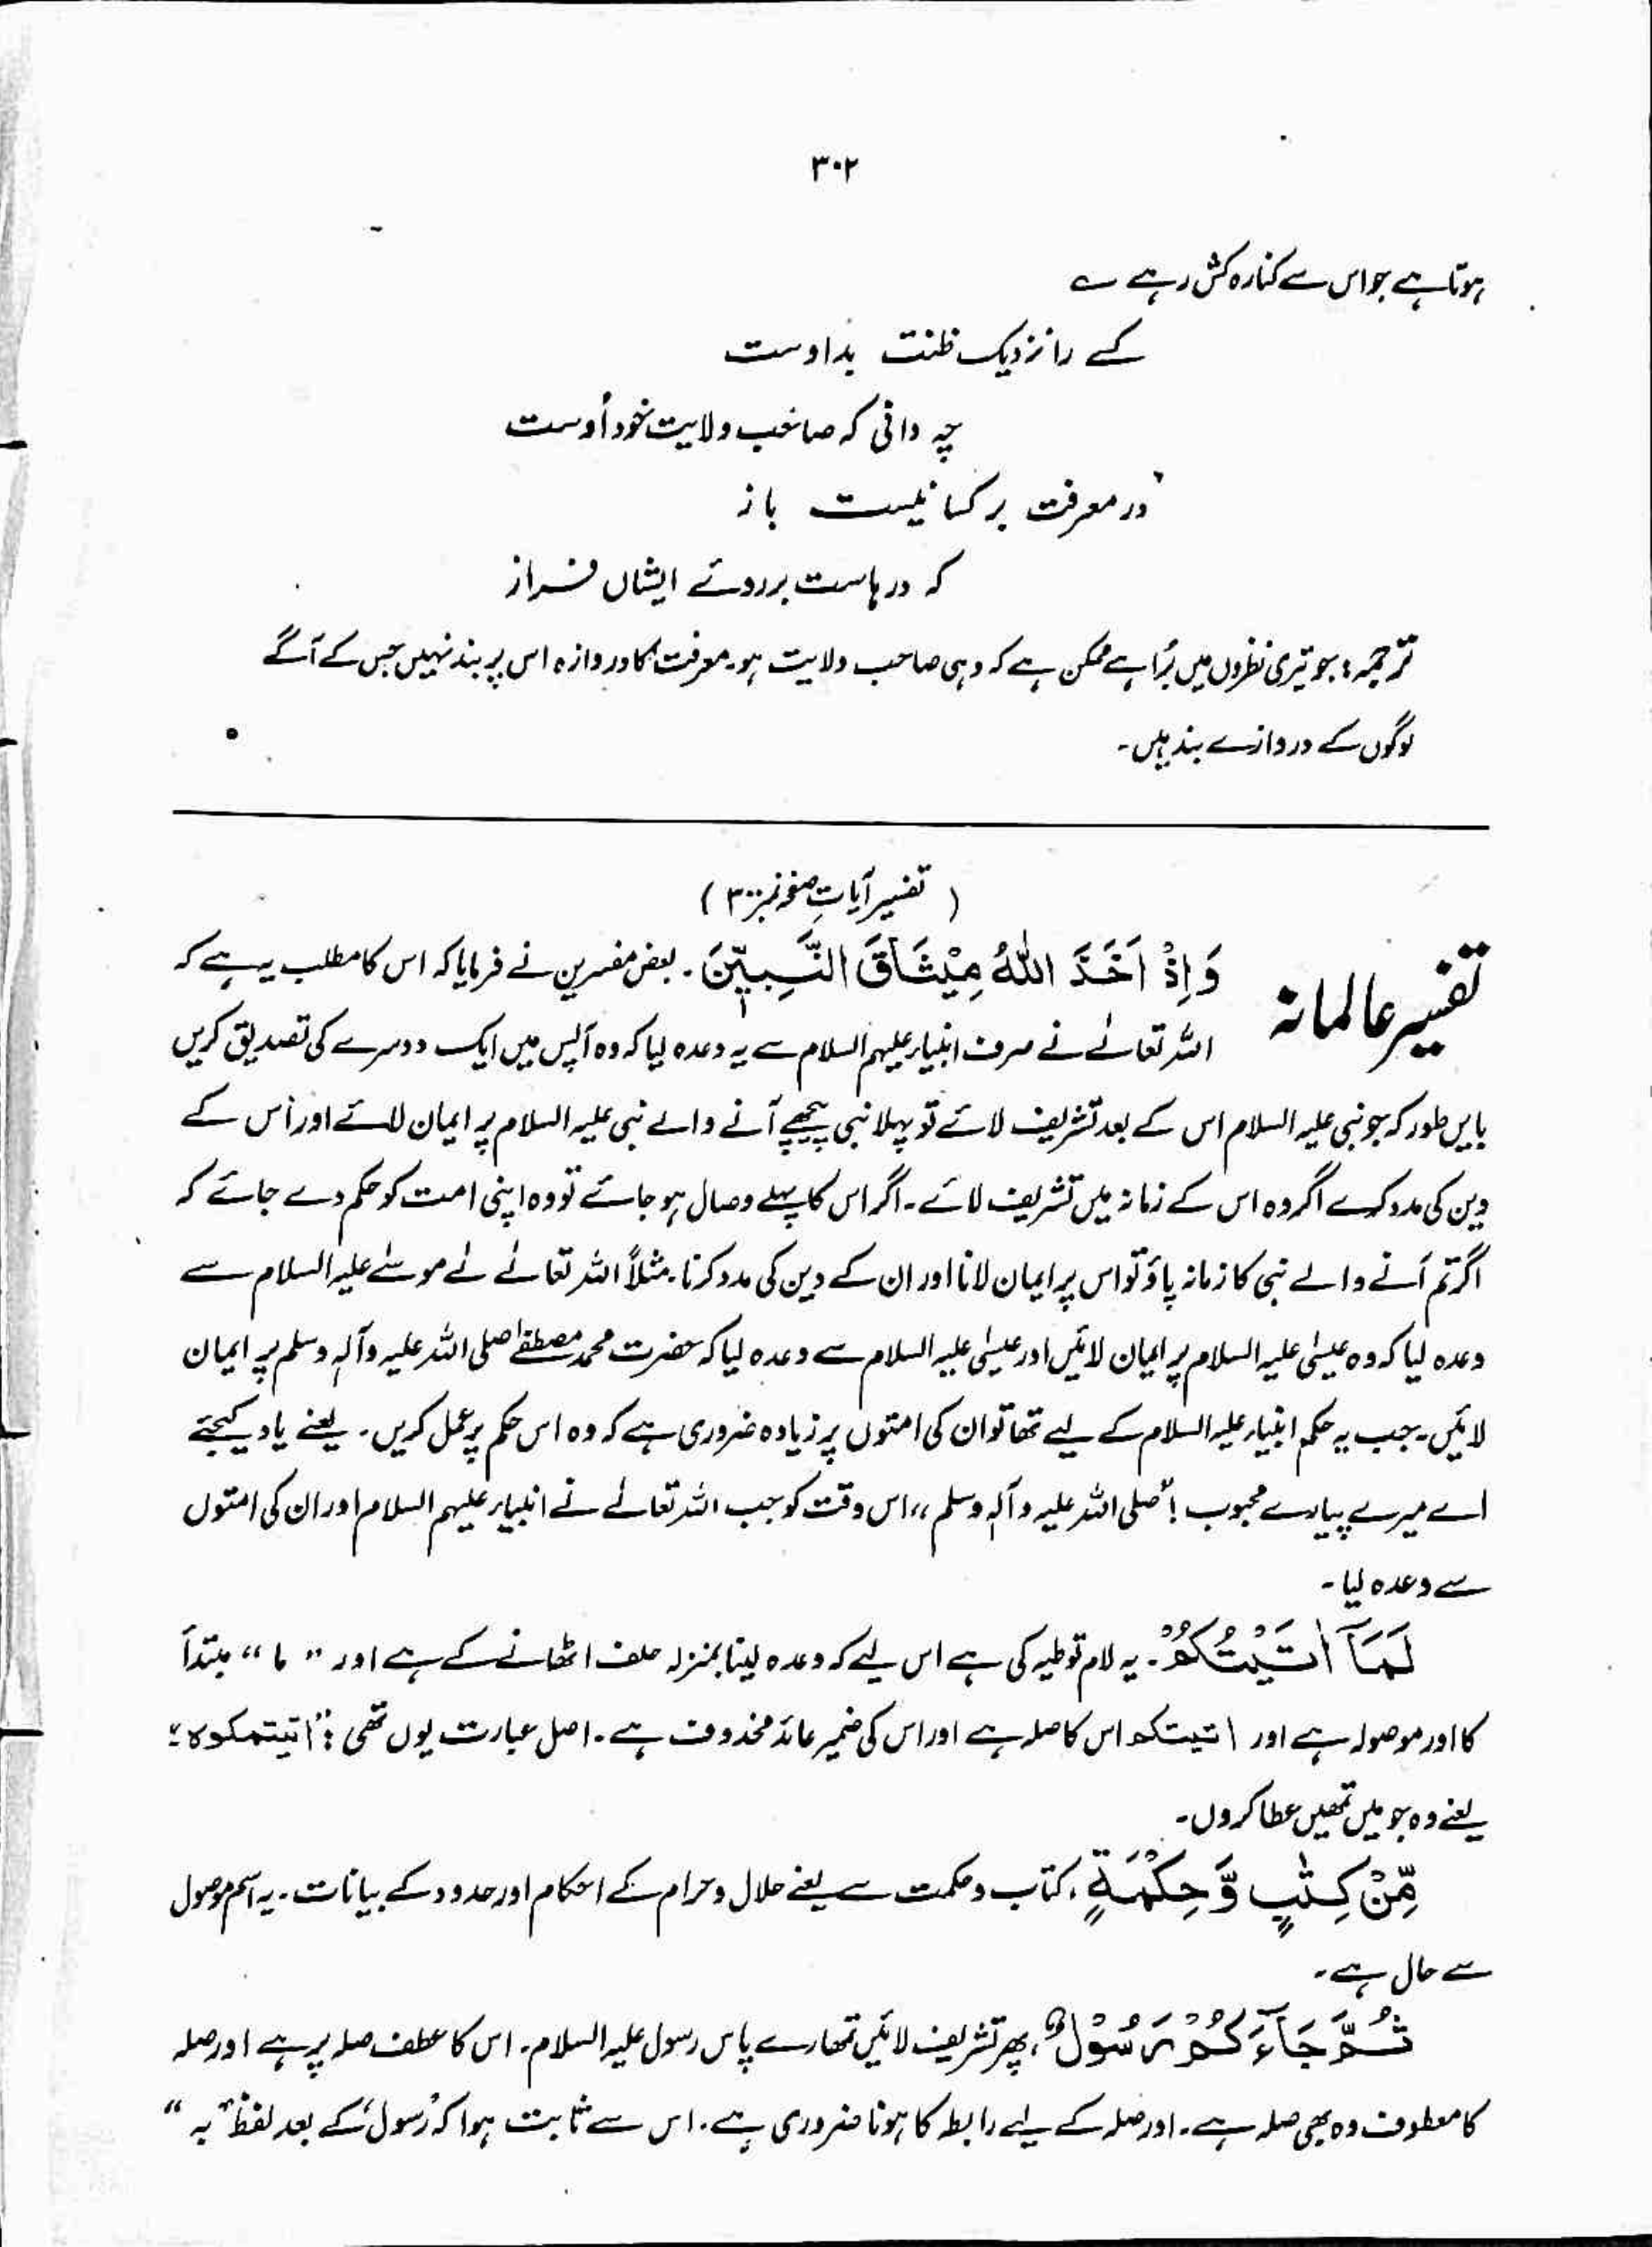 ۳۰۲
ہوتا ہے جو اس سے کنارہ کش رہے ؎
کسے را نزدیک ظنت بد اوست
چہ دانی کہ صاحب ولایت خود اُوست
در معرفت بر کسا نیست باز
کہ درہاست بر روئے ایشاں فراز
ترجمہ : جو تیری نظروں میں بُرا ہے ممکن ہے کہ وہی صاحب ولایت ہو۔ معرفت کا دروازہ اس پر بند نہیں جس کے آگے
لوگوں کے دروازے بند ہیں۔
( تفسیر آیاتِ صفحہ نمبر ۳۰۰ )
تفسیر عالمانہ
وَ اِذْ اَخَذَ اللّٰهُ مِیْثَاقَ النَّبِیّٖنَ ۔ بعض مفسرین نے فرمایا کہ اس کا مطلب یہ ہے کہ
اللہ تعالےٰ نے صرف انبیاء علیہم السلام سے یہ وعدہ لیا کہ وہ آپس میں ایک دوسرے کی تصدیق کریں
بایں طور کہ جو نبی علیہ السلام اس کے بعد تشریف لائے تو پہلا نبی پیچھے آنے والے نبی علیہ السلام پر ایمان لائے اور اُس کے
دین کی مدد کرے اگر وہ اس کے زمانہ میں تشریف لائے۔ اگر اس کا پہلے وصال ہو جائے تو وہ اپنی امت کو حکم دے جائے کہ
اگر تم آنے والے نبی کا زمانہ پاؤ تو اس پر ایمان لانا اور ان کے دین کی مدد کرنا۔ مثلاً اللہ تعالےٰ نے موسےٰ علیہ السلام سے
وعدہ لیا کہ وہ عیسٰی علیہ السلام پر ایمان لائیں اور عیسٰی علیہ السلام سے وعدہ لیا کہ حضرت محمد مصطفےٰ صلی اللہ علیہ وآلہٖ وسلم پر ایمان
لائیں۔ جب یہ حکم انبیاء علیہ السلام کے لیے تھا تو ان کی امتوں پر زیادہ ضروری ہے کہ وہ اس حکم پر عمل کریں۔ یعنے یاد کیجئے
اے میرے پیارے محبوب ! "صلی اللہ علیہ وآلہٖ وسلم،، اس وقت کو جب اللہ تعالےٰ نے انبیاء علیہم السلام اور ان کی امتوں
سے وعدہ لیا۔
لَمَآ اٰتَیْتُكُمْ ۔ یہ لام توطیہ کی ہے اس لیے کہ وعدہ لینا بمنزلہ حلف اٹھانے کے ہے اور "ما" مبتدأ
کا اور موصولہ ہے اور اٰتیتکم اس کا صلہ ہے اور اس کی ضمیر عائد محذوف ہے۔ اصل عبارت یوں تھی : "اٰتیتمکوہ"؛
یعنے وہ جو میں تمھیں عطا کروں۔
مِّنْ كِتٰبٍ وَّ حِكْمَةٍ ، کتاب و حکمت سے یعنے حلال و حرام کے احکام اور حدود کے بیانات۔ یہ اسم موصول
سے حال ہے۔
ثُمَّ جَآءَكُمْ رَسُوْلٌ ، پھر تشریف لائیں تمھارے پاس رسول علیہ السلام۔ اس کا عطف صلہ پر ہے اور صلہ
کا معطوف وہ بھی صلہ ہے۔ اور صلہ کے لیے رابط کا ہونا ضروری ہے۔ اس سے ثابت ہوا کہ 'رسول' کے بعد لفظ "بہ"